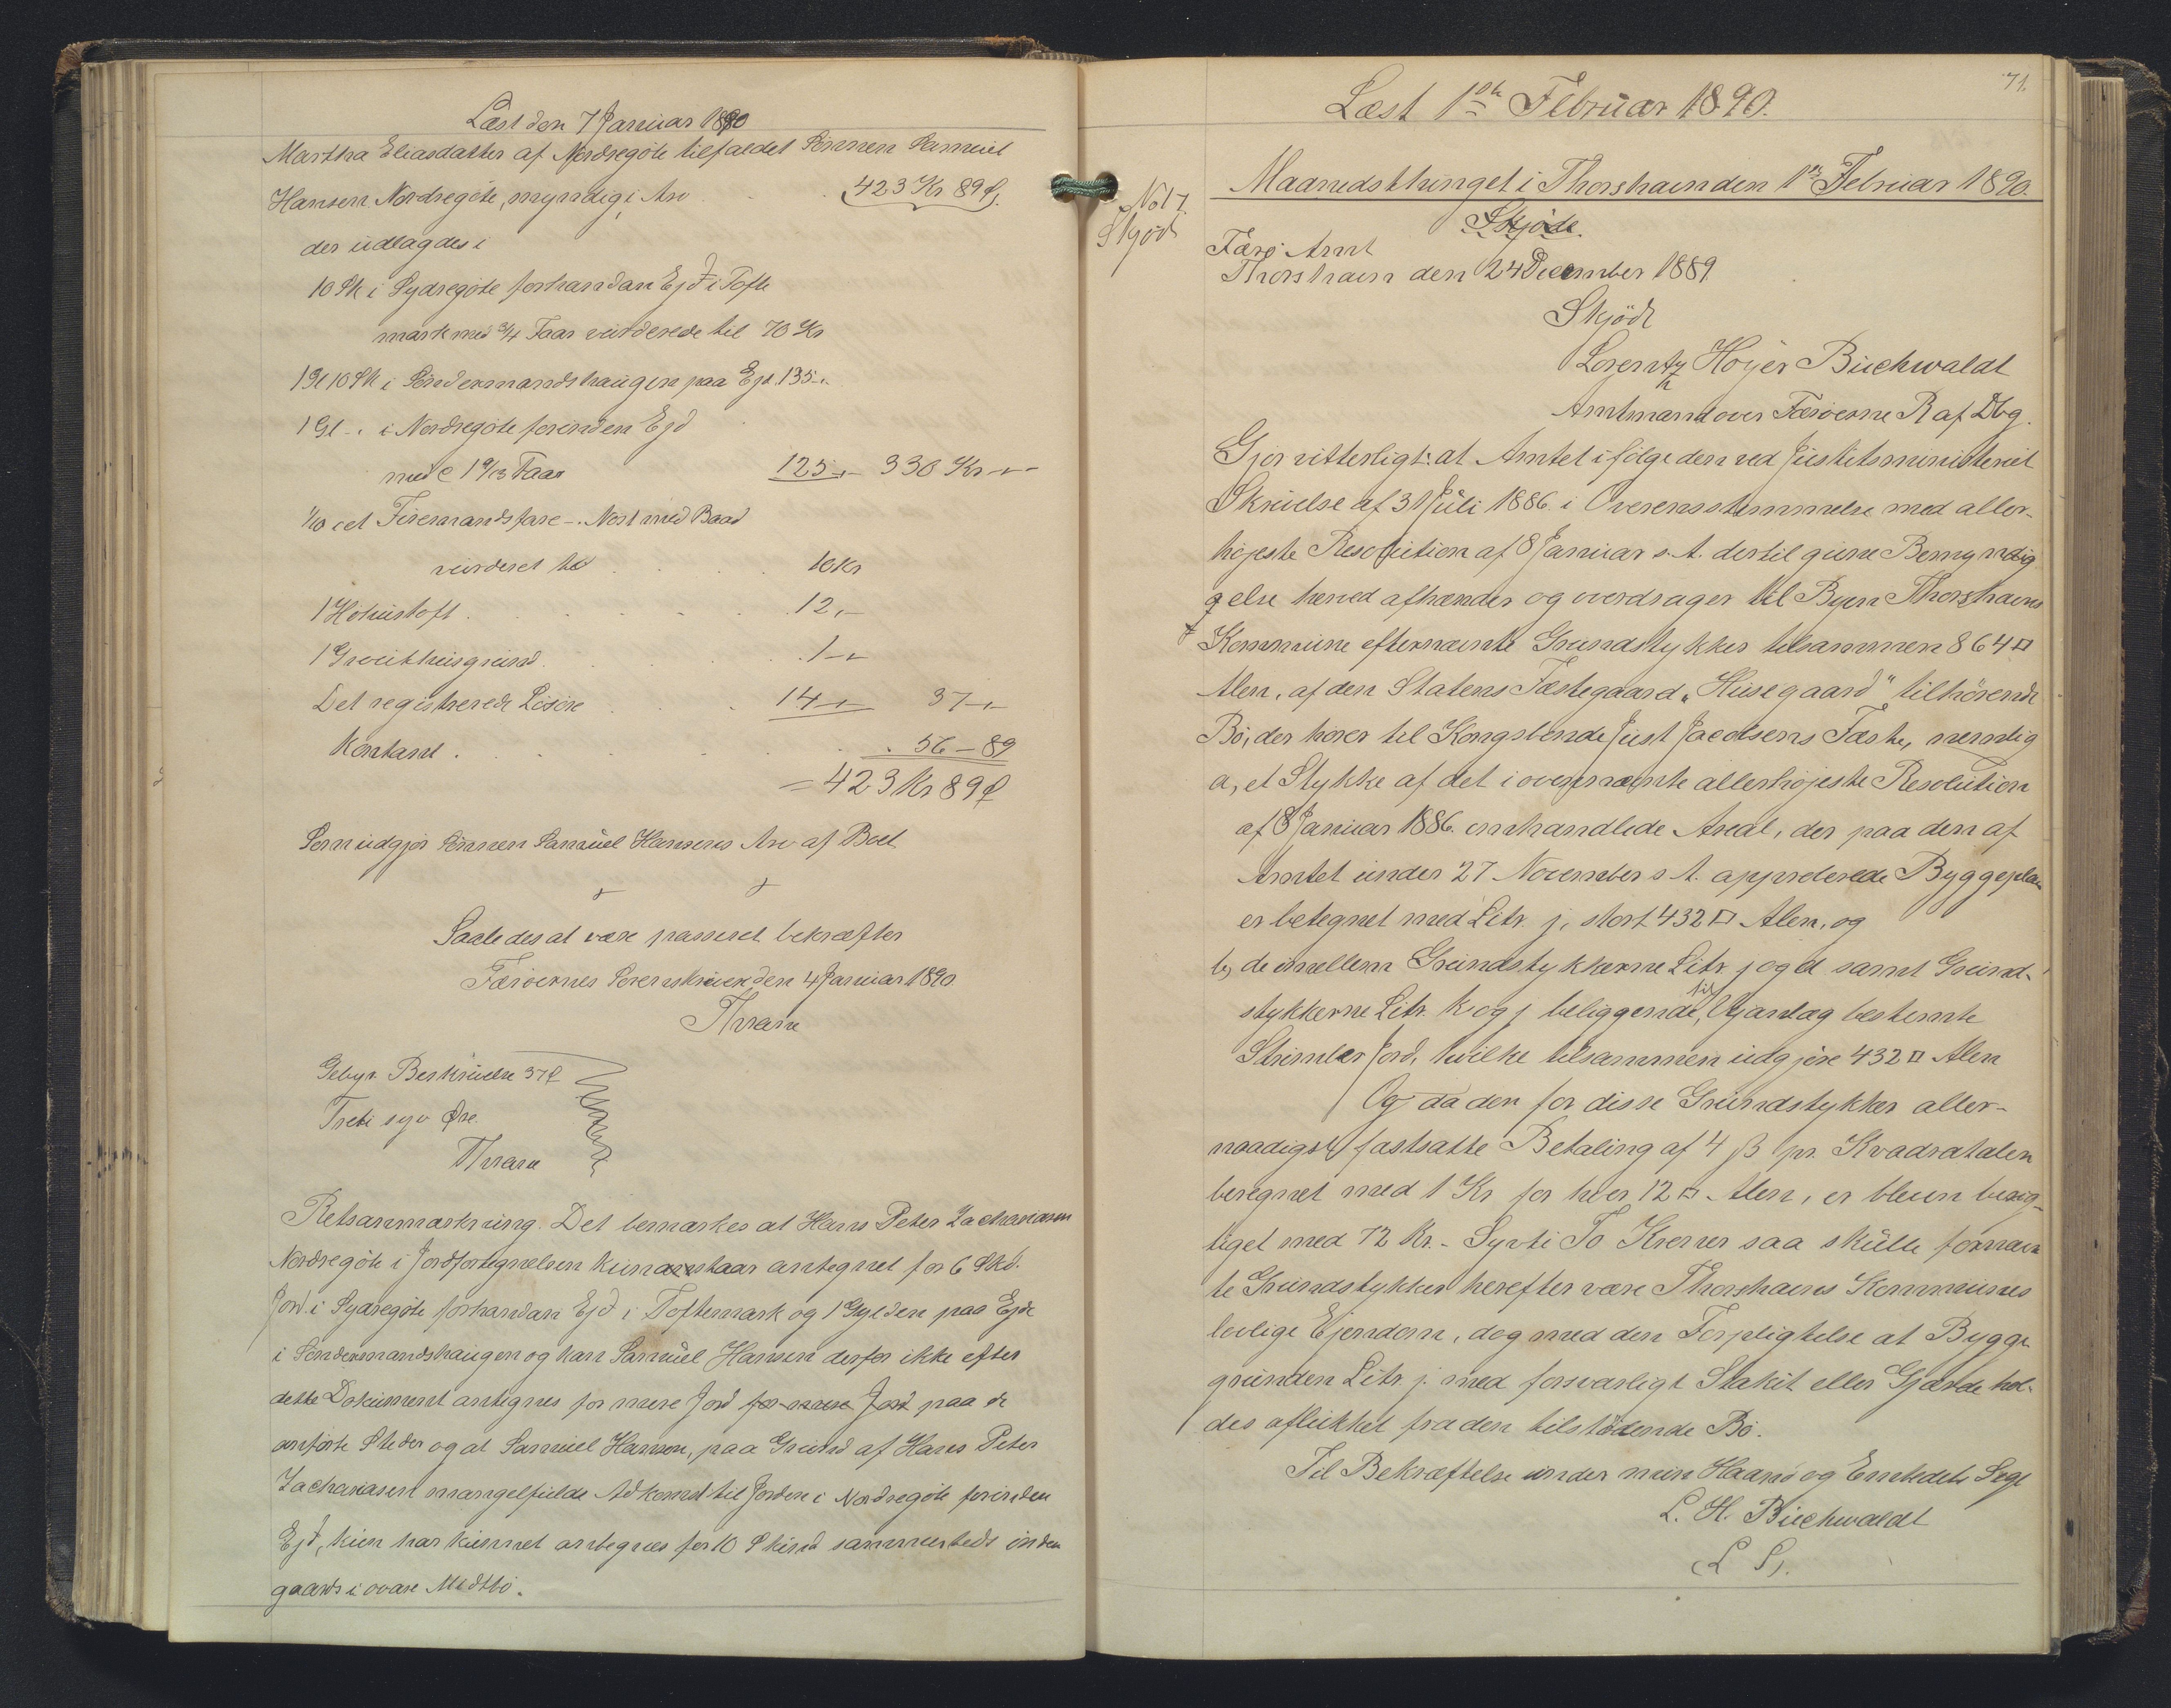 Læst den 7 Januar 1890
Martha Eliasdatter af Nordregöte tilfaldet Sönnen Samuel
Hansen Nordregöte, myndig, Arv . . 423 Kr 89 Ø.
der udlagdes i
10 Sk i Sydregöte forhandan Ejd i Tofte
mark med 3/4 Faar vurderede til 70 Kr
1 Gl 10 Sk i Söndermandshaugen paa Ejd. 135 „
1 Gl - „ i Nordregöte forinden Ejd
med 1 9/13 Faar 125 „ 330 Kr „
1/10 i et Firemandsfare - Nöst med Baad
vurderet til . . . 10 Kr
1 Hohustoft . . . . 12 „
1 Grouthusgrund . . . 1 „
Det registrerede Lösöre . . 14 „ 37 „
Kontant . . . . . 56 - 89
= 423 Kr 89 Ø
Som udgjör Sönnen Samuel Hansens Arv af Boet
Saaledes at være passeret bekræfter
Færöernes Sorenskriveri den 4 Januar 1890
Thrane
Gebyr. Beskrivelse 37 Ø
Treti syv Øre.
Thrane
Retsanmærkning. Det bemærkes at Hans Peter Zachariasen
Nordregöte i Jordfortegnelsen kun staar antegnet for 6 Skd.
Jord i Sydregöte forhandan Ejd i Toftemark og 1 Gylden paa Ejde
i Söndermandshaugen og kan Samuel Hansen derfor ikke efter
dette Dokument antegnes for mere Jord for mere Jord paa de
anförte Steder og at Samuel Hansen, paa Grund af Hans Peter
Zachariasens mangelfulde Adkomst til Jorden i Nordregöte forinden
Ejd, kun har kunnet antegnes for 10 Skind sammesteds inden
gaards i ovare Midtbö.
71.
Læst 1ste Februar 1890.
Maanedsthinget i Thorshavn den 1ste Februar 1890.
No 17.
Skjöd
Skjöde.
Færö Amt
Thorshavn den 24 December 1889
Skjöde
Lorentz Höyer Buchwaldt
Amtmand over Færöerne R af Dbg.
Gjör vitterligt: at Amtet ifölge den ved Justitsministeriet
Skrivelse af 31 Juli 1886 i Overensstemmelse med aller-
höjeste Resolution af 8 Januar s. A. dertil givne Bemyndig
gelse herved afhænder og overdrager til Byen Thorshavns
Kommune efternævnte Grundstykker tilsammen 864 □
Alen, af den Statens Fæstegaard „Husegaard" tilhörende
Bö, der hörer til Kongsbonde Just Jacobsens Fæste, nemlig
a, et Stykke af det i ovennævnte allerhöjeste Resolution
af 8 Januar 1886. omhandlede Areal, der paa den af
Amtet under 27 November s. A. approberede Byggeplan
er betegnet med Litr. j, stort 432 □ Alen, og
b, de imellem Grundstykkerne Litr. j og d samt Grund-
stykkerne Litr. k og j beliggende, til Vejanlæg bestemte
Strimler Jord, hvilke tilsammen udgjöre 432 □ Alen
Og da den for disse Grundstykker aller-
naadigst fastsatte Betaling af 4 ß pr. Kvadratalen
beregnet med 1 Kr for hver 12 □ Alen, er bleven berig-
tiget med 72 Kr. - Syvti To Kroner saa skulle fornævn
te Grundstykker herefter være Thorshavns Kommunes
lovlige Ejendom, dog med den Forpligtelse at Bygge
grunden Litr. j. med forsvarligt Stakit eller Gjærde hol-
des aflukket fra den tilstödende Bö.
Til Bekræftelse under min Haand og Embedets Segl
L. H. Buchwaldt
(L. S.).